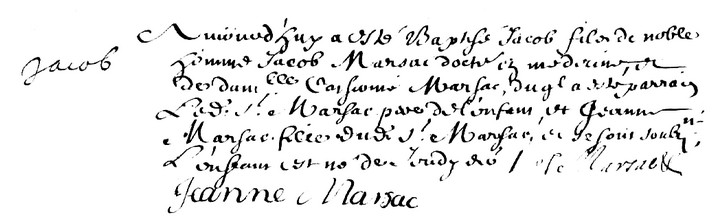 Jacob
Aujourd'huy a esté Baptisé Jacob filz de noble
homme Jacob Marsac docteur en medecine et
de dam.elle Marsac, duql a esté parrain
Led. Sr. Marsac pere de l'enfant, et Jeanne
Marsac fille dud. Sr. Marsac, et se sont soub.nez
L'enfant est né de Jeudy Marsac
Jeanne Marsac